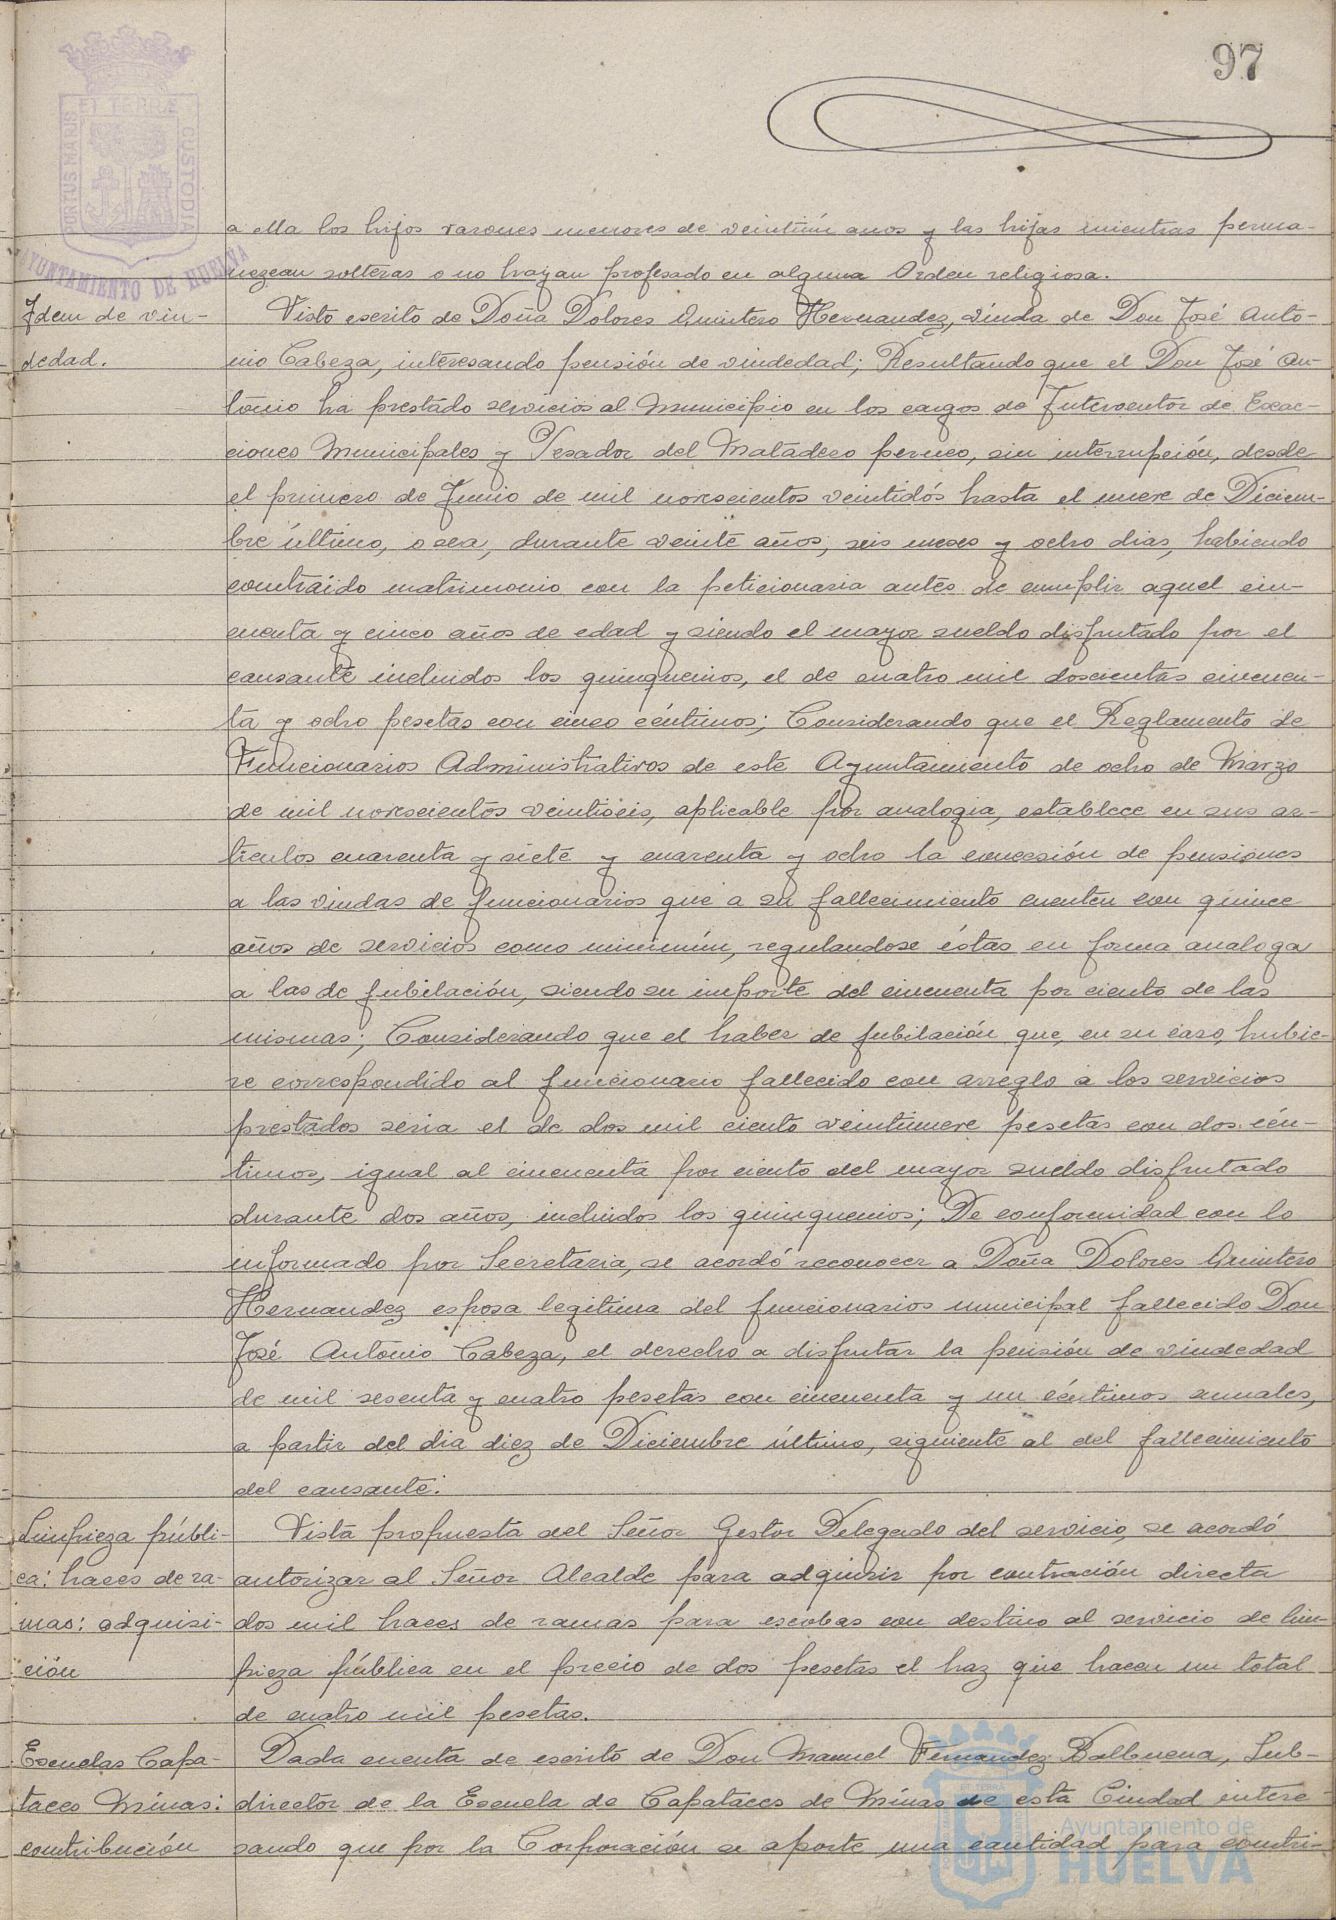 97
ET TERRÆ
PORTUS MARIS
CUSTODIA
AYUNTAMIENTO DE HUELVA
a ella los hijos varones menores de veintiún anos y las hijas mientras perma-
nezcan solteras o no hayan profesado en alguna Orden religiosa.
Idem de viu-
dedad.
Visto escrito de Doña Dolores Quintero Hernandez, viuda de Don José Anto-
nio Cabeza, interesando pensión de viudedad; Resultando que el Don José An-
tonio ha prestado servicios al Municipio en los cargos de Interventor de Exac-
ciones Municipales y Pesador del Matadero perneo, sin interrupción, desde
el primero de Junio de mil novescientos veintidós hasta el nueve de Diciem-
bre último, o sea, durante veinte años, seis meses y ocho dias, habiendo
contraido matrimonio con la peticionaria antes de cumplir aquel cin-
cuenta y cinco años de edad y siendo el mayor sueldo disfrutado por el
causante incluidos los quinquenios, el de cuatro mil doscientas cincuen-
ta y ocho pesetas con cinco céntimos; Considerando que el Reglamento de
Funcionarios Administrativos de este Ayuntamiento de ocho de Marzo
de mil novescientos veintiseis, aplicable por analogia, establece en sus ar-
ticulos cuarenta y siete y cuarenta y ocho la concesión de pensiones
a las viudas de funcionarios que a su fallecimiento cuenten con quince
años de servicios como minimún, regulandose éstas en forma analoga
a las de jubilación, siendo su importe del cincuenta por ciento de las
mismas; Considerando que el haber de jubilación que, en su caso, hubie-
re correspondido al funcionario fallecido con arreglo a los servicios
prestados seria el de dos mil ciento veintinueve pesetas con dos cén-
timos, igual al cincuenta por ciento del mayor sueldo disfrutado
durante dos años, incluidos los quinquenios; De conformidad con lo
informado por Secretaria, se acordó reconocer a Doña Dolores Quintero
Hernandez esposa legitima del funcionarios municipal fallecido Don
José Antonio Cabeza, el derecho a disfrutar la pensión de viudedad
de mil sesenta y cuatro pesetas con cincuenta y un céntimos anuales,
a partir del dia diez de Diciembre último, siguiente al del fallecimiento
del causante.
Limpieza públi-
ca: haces de ra-
mas: adquisi-
ción
Vista propuesta del Señor Gestor Delegado del servicio, se acordó
autorizar al Señor Alcalde para adquirir por contración directa
dos mil haces de ramas para escobas con destino al servicio de lim-
pieza pública en el precio de dos pesetas el haz que hacen un total
de cuatro mil pesetas.
Escuelas Capa-
taces Minas:
contribución
Dada cuenta de escrito de Don Manuel Fernandez Balbuena, Sub-
director de la Escuela de Capataces de Minas de esta Ciudad intere-
sando que por la Corporación se aporte una cantidad para contri-
Ayuntamiento de
HUELVA